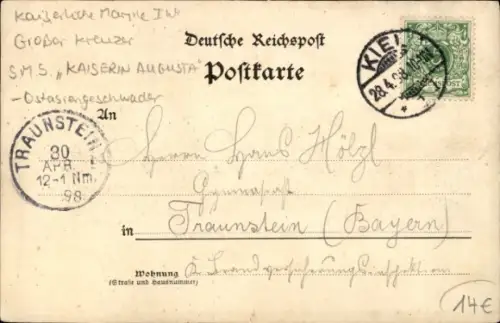 Kaiserliche Marine IWK
Großer Kreuzer
S.M.S. „KAISERIN AUGUSTA"
– Ostasiengeschwader
Deutsche Reichspost
Postkarte
KIEL
28.4.98
An
TRAUNSTEIN
30
APR
12-1 Nm.
98
Herrn Hans Hölzl
in Traunstein (Bayern)
Wohnung
(Straße und Hausnummer)
14€